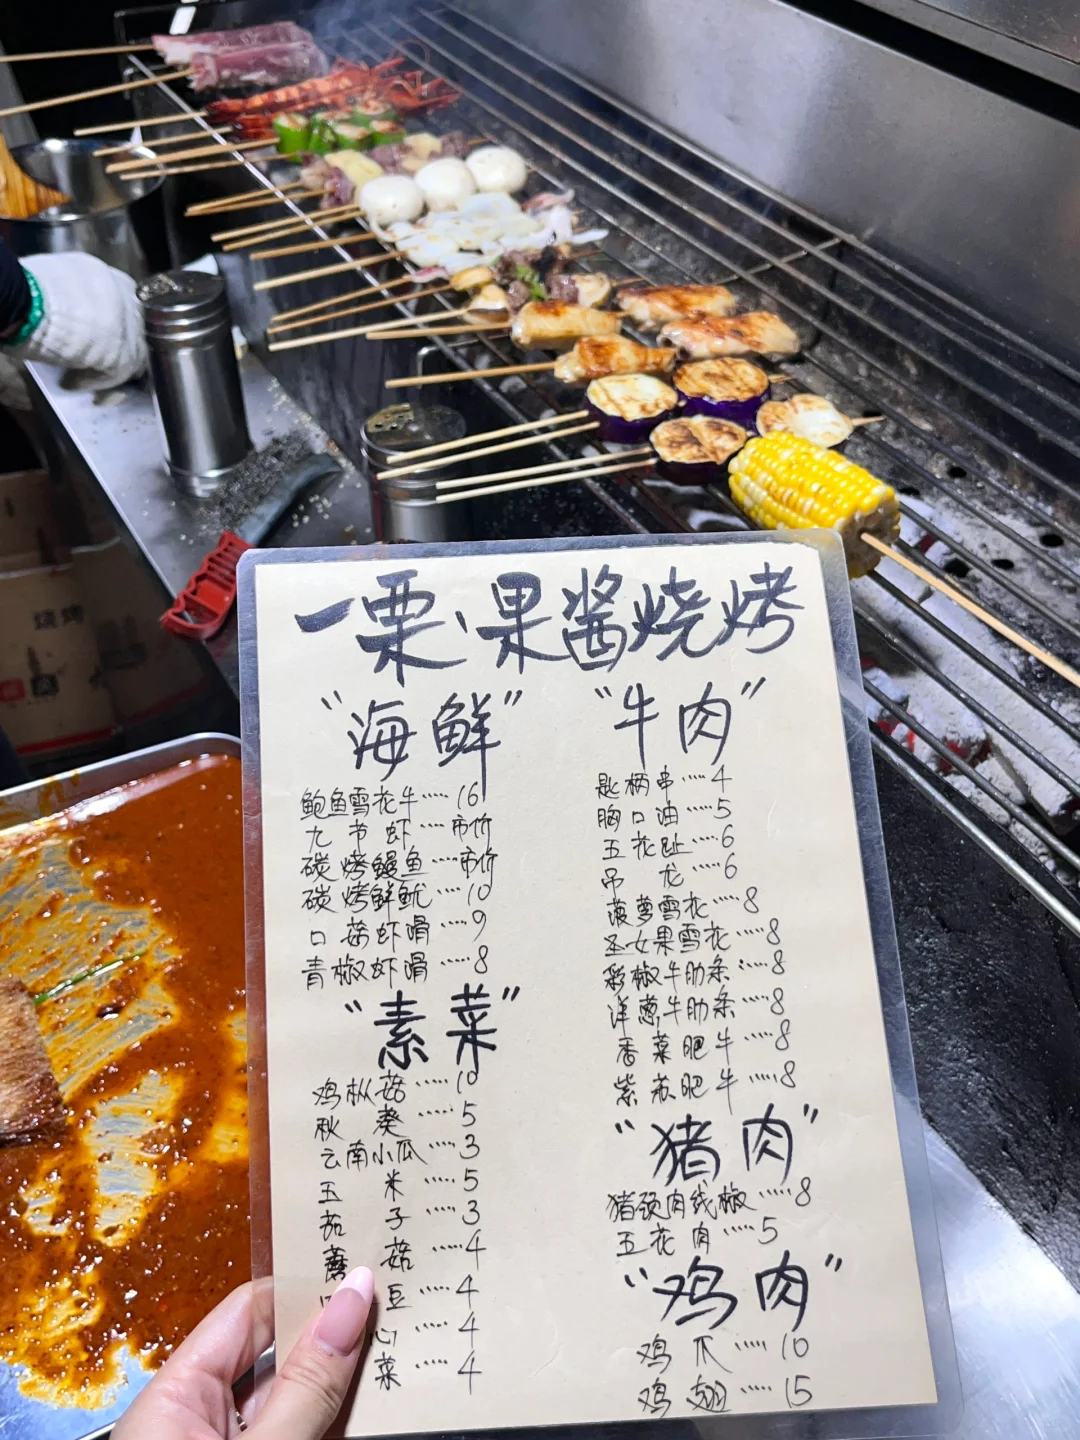 烧烤
一栗、果酱烧烤
“海鲜”
鲍鱼雪花牛……16
九节虾……市价
碳烤鳗鱼……市价
碳烤鲜鱿……10
口菇虾滑……9
青椒虾滑……8
“素菜”
鸡枞菇……10
秋葵……5
云南小瓜……3
玉米……5
茄子……3
蘑菇……4
豆……4
心……4
菜……4
“牛肉”
匙柄串……4
胸口油……5
五花趾……6
吊龙……6
菠萝雪花……8
圣女果雪花……8
彩椒牛肋条……8
洋葱牛肋条……8
香菜肥牛……8
紫苏肥牛……8
“猪肉”
猪颈肉线椒……8
五花肉……5
“鸡肉”
鸡爪……10
鸡翅……15